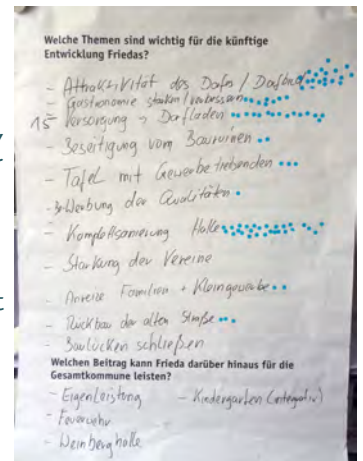 Welche Themen sind wichtig für die künftige
Entwicklung Friedas?
- Attraktivität des Dorfes /
- Gastronomie stärken / verbessern
15 - Versorgung → Dorfladen
- Beseitigung von Bauruinen
- Tafel mit Gewerbetreibenden
- Werbung der Qualitäten
- Komplettsanierung Halle
- Stärkung der Vereine
- Anreize Familien + Kleingewerbe
- Rückbau der alten Straße
- Baulücken schließen
Welchen Beitrag kann Frieda darüber hinaus für die
Gesamtkommune leisten?
- Eigenleistung - Kindergarten (integrativ)
- Feuerwehr
- Weinberghalle